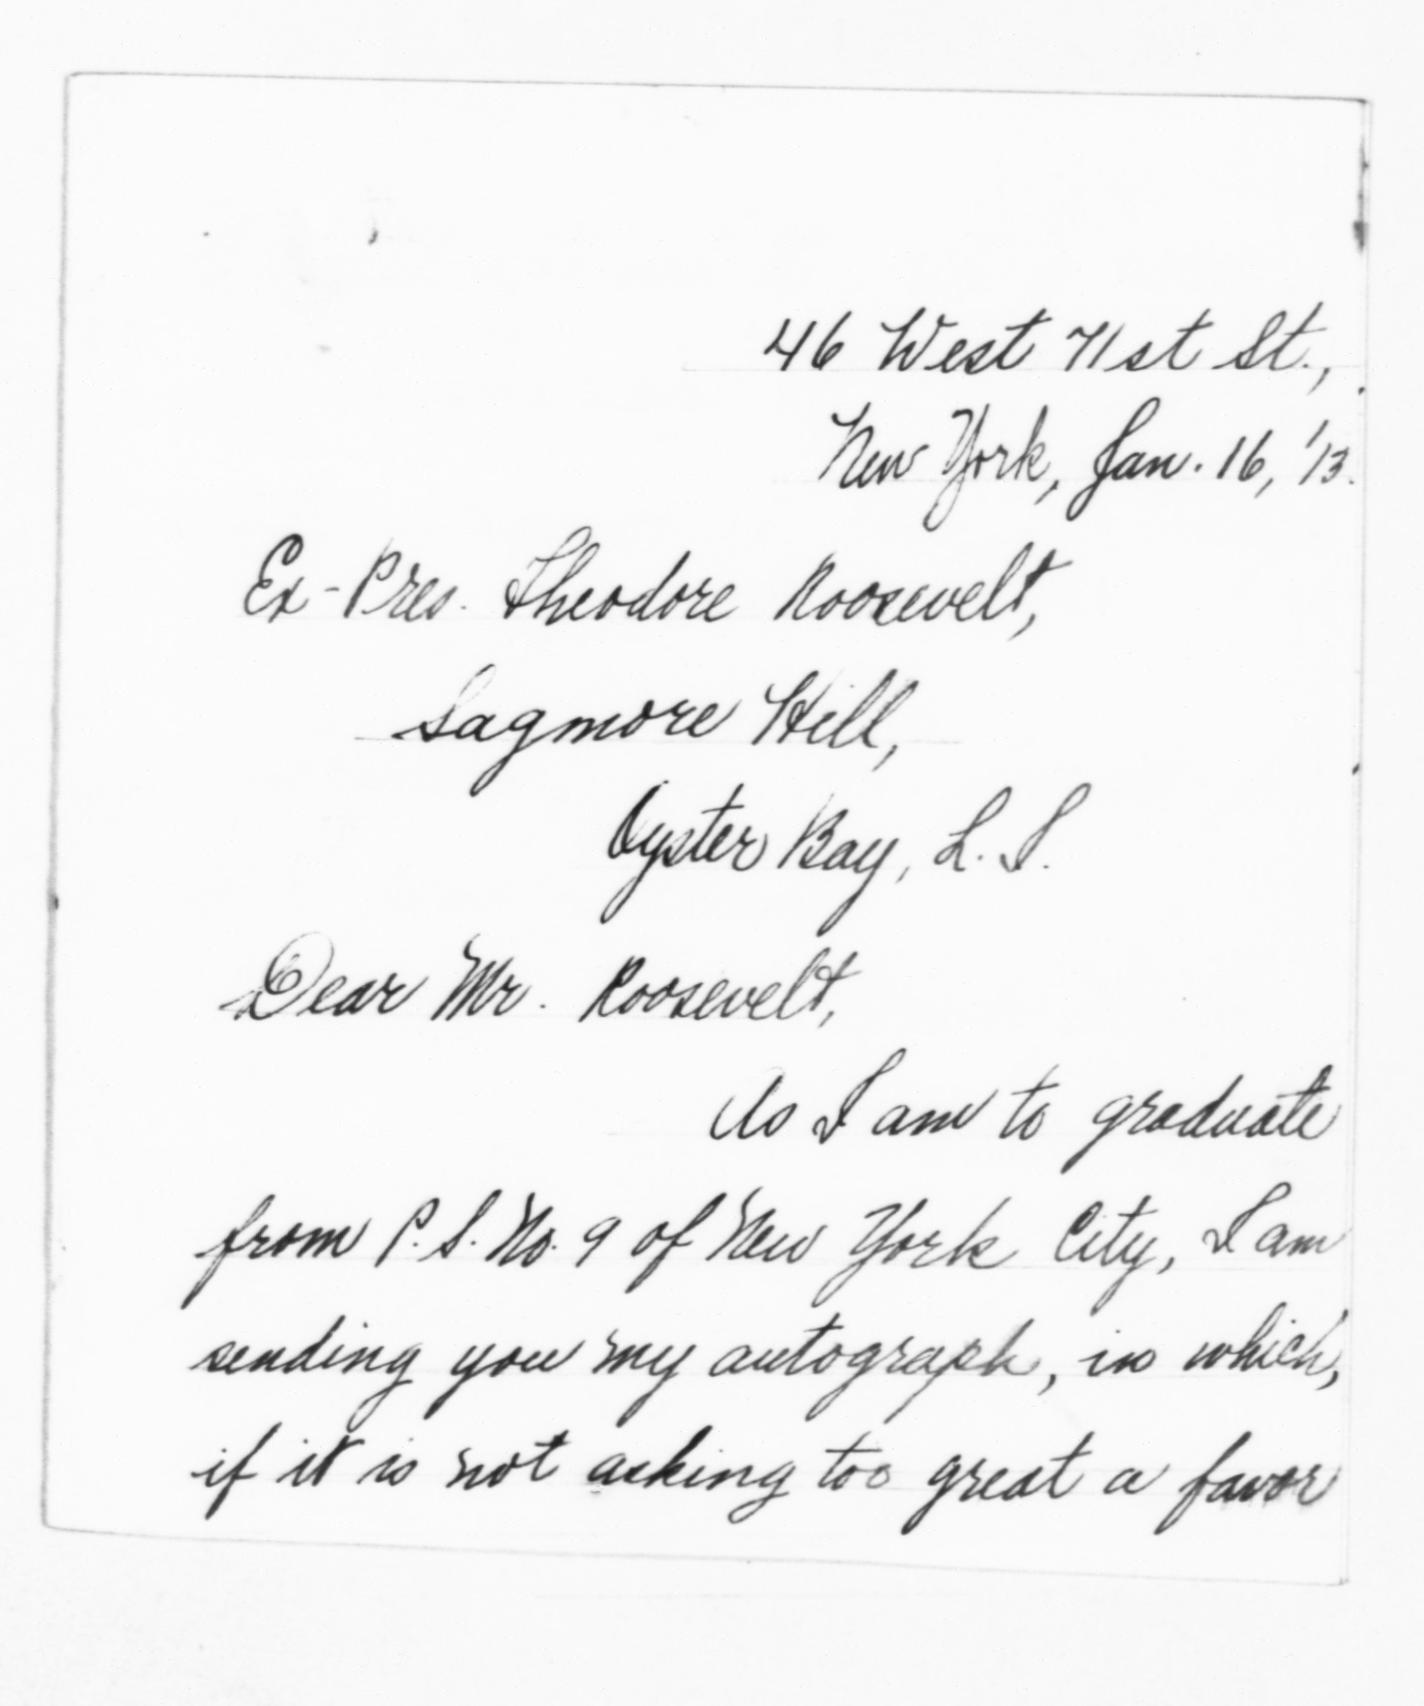 46 West 71st St.,
New York, Jan. 16, '13.
Ex-Pres. Theodore Roosevelt,
Sagmore Hill,
Oyster Bay, L. I.
Dear Mr. Roosevelt,
As I am to graduate
from P. S. No. 9 of New York City, I am
sending you my autograph, in which,
if it is not asking too great a favor